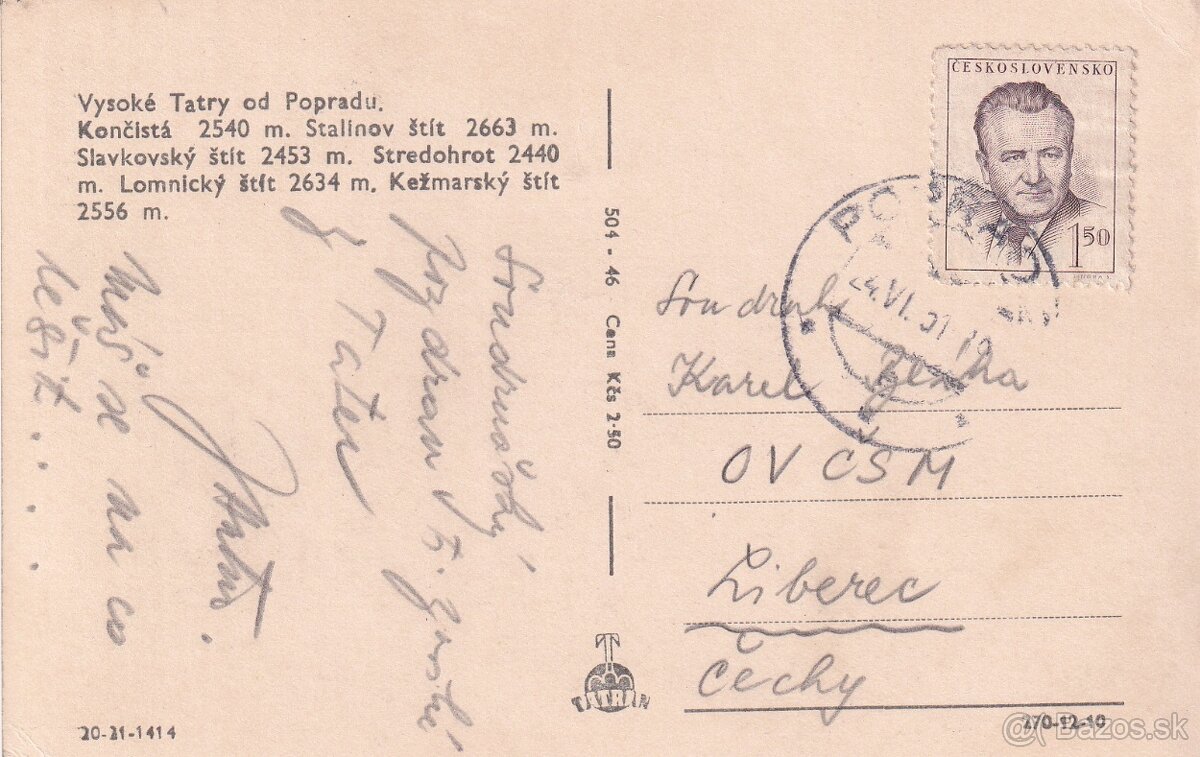 Vysoké Tatry od Popradu.
Končistá 2540 m. Stalinov štít 2663 m.
Slavkovský štít 2453 m. Stredohrot 2440
m. Lomnický štít 2634 m. Kežmarský štít
2556 m.
Soudružský
pozdrav
z Tater
Máš se na co
těšit....
504 - 46 Cena Kčs 2·50
TATRAN
20-21-1414
ČESKOSLOVENSKO
1 50
Soudruh
Karel
OV ČSM
Liberec
Čechy
270-12-10
@( Bazos.sk